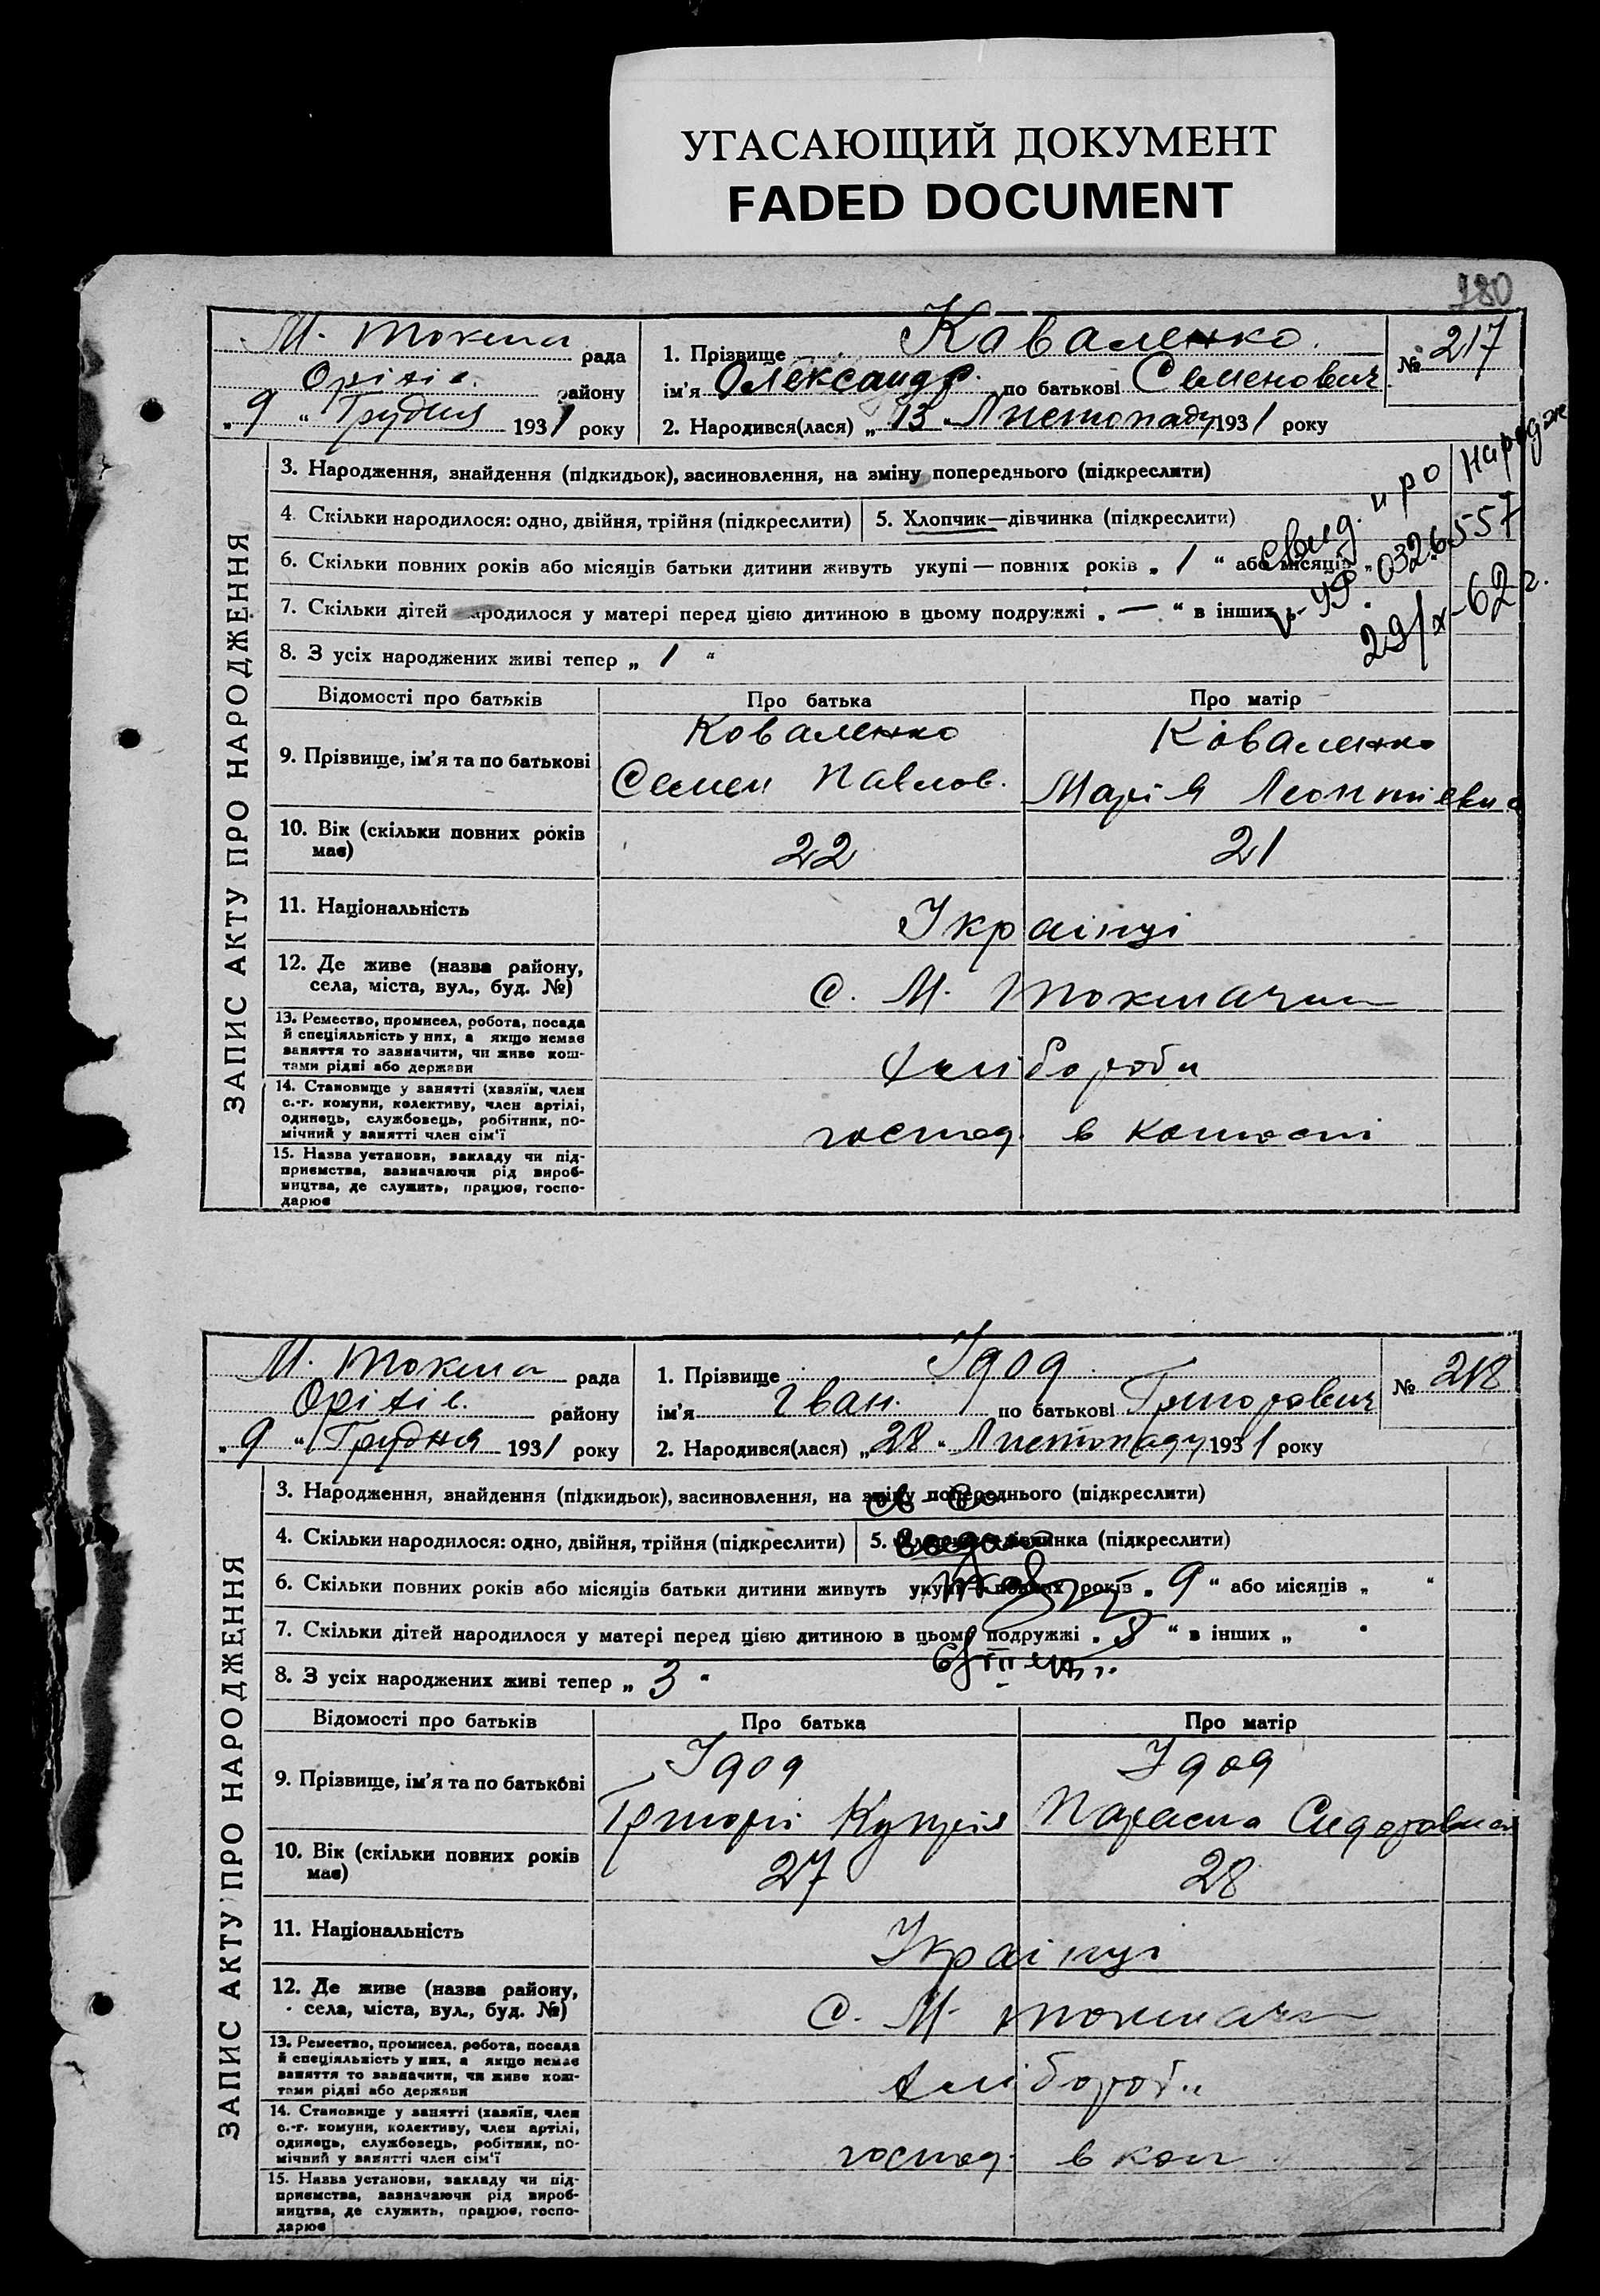 УГАСАЮЩИЙ ДОКУМЕНТ
FADED DOCUMENT
180
М. Токма рада
Оріхів. району
„ 9 “ Грудня 1931 року
1. Прізвище Каваленко.
ім'я Олександр. по батькові Семенович
2. Народився(лася) „ 13 “ Листопаду 1931 року
№ 217
ЗАПИС АКТУ ПРО НАРОДЖЕННЯ
3. Народження, знайдення (підкидьок), засиновлення, на зміну попереднього (підкреслити)
4. Скільки народилося: одно, двійня, трійня (підкреслити)
5. Хлопчик—дівчинка (підкреслити)
6. Скільки повних років або місяців батьки дитини живуть укупі — повних років „ 1 “ або місяців „
7. Скільки дітей народилося у матері перед цією дитиною в цьому подружжі „ — “ в інших
8. З усіх народжених живі тепер „ 1 “
свид. про народж
УФ. 0326557
29/X-62 г.
Відомості про батьків
Про батька
Про матір
9. Прізвище, ім'я та по батькові
Коваленко
Семен Павлов.
Коваленко
Марія Леонтіевна
10. Вік (скільки повних років має)
22
21
11. Національність
Украінці
12. Де живе (назва району, села, міста, вул., буд. №)
с. М. Токмачка
13. Ремество, промисел, робота, посада
й спеціяльність у них, а якщо немає
заняття то зазначити, чи живе кош-
тами рідні або держави
хлібороби
14. Становище у занятті (хазяїн, член
с.-г. комуни, колективу, член артілі,
одинець, службовець, робітник, по-
мічний у занятті член сім'ї
господ. в
15. Назва установи, закладу чи під-
приємства, зазначаючи рід вироб-
ництва, де служить, працює, госпо-
дарює
М. Токма рада
Оріхів. району
„ 9 “ Грудня 1931 року
1. Прізвище Удод.
ім'я Іван. по батькові Григорович
2. Народився(лася) „ 28 “ Листопаду 1931 року
№ 218
ЗАПИС АКТУ ПРО НАРОДЖЕННЯ
3. Народження, знайдення (підкидьок), засиновлення, на зміну попереднього (підкреслити)
4. Скільки народилося: одно, двійня, трійня (підкреслити)
5. Хлопчик—дівчинка (підкреслити)
6. Скільки повних років або місяців батьки дитини живуть укупі — повних років „ 9 “ або місяців „ “
7. Скільки дітей народилося у матері перед цією дитиною в цьому подружжі „ “ в інших „ “
8. З усіх народжених живі тепер „ 3 “
Відомості про батьків
Про батька
Про матір
9. Прізвище, ім'я та по батькові
Удод
Григорі Купрія
Удод
Параска Сидоровна
10. Вік (скільки повних років має)
27
28
11. Національність
Украінці
12. Де живе (назва району, села, міста, вул., буд. №)
с. М. Токмачк
13. Ремество, промисел, робота, посада
й спеціяльність у них, а якщо немає
заняття то зазначити, чи живе кош-
тами рідні або держави
хлібороби
14. Становище у занятті (хазяїн, член
с.-г. комуни, колективу, член артілі,
одинець, службовець, робітник, по-
мічний у занятті член сім'ї
господ. в кол
15. Назва установи, закладу чи під-
приємства, зазначаючи рід вироб-
ництва, де служить, працює, госпо-
дарює